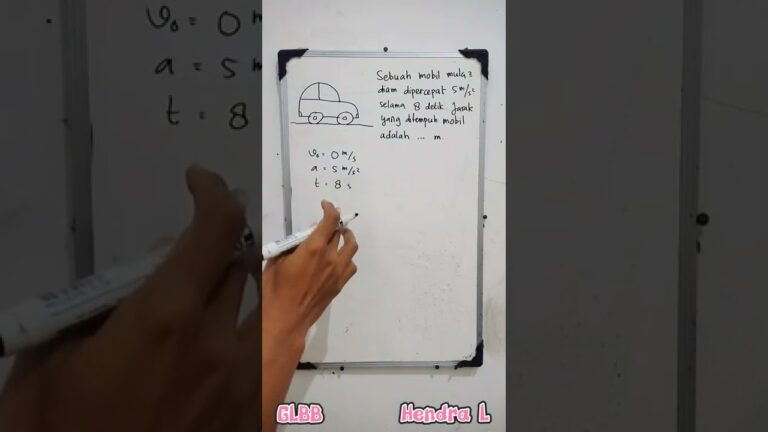 Sebuah mobil mula2
diam dipercepat 5 m/s²
selama 8 detik. Jarak
yang ditempuh mobil
adalah ... m.
v₀ = 0 m/s
a = 5 m/s²
t = 8 s
GLBB
Hendra L